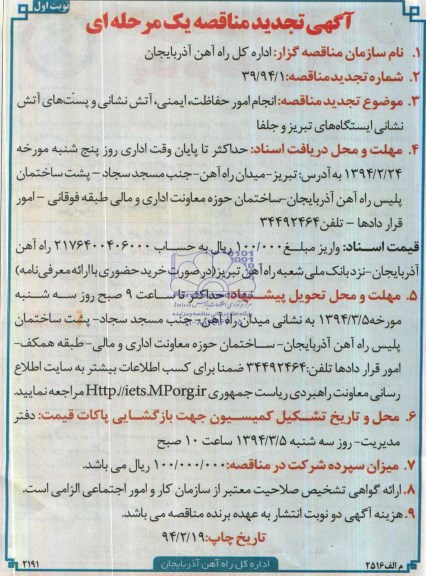 نوبت اول
آگهی تجدید مناقصه یک مرحله ای
۱. نام سازمان مناقصه گزار: اداره کل راه آهن آذربایجان
۲. شماره تجدید مناقصه: ۳۹/۹۴/۱
۳. موضوع تجدید مناقصه: انجام امور حفاظت، ایمنی، آتش نشانی و پست‌های آتش
نشانی ایستگاه‌های تبریز و جلفا
۴. مهلت و محل دریافت اسناد: حداکثر تا پایان وقت اداری روز پنج شنبه مورخه
۱۳۹۴/۲/۲۴ به آدرس: تبریز-میدان راه آهن-جنب مسجد سجاد - پشت ساختمان
پلیس راه آهن آذربایجان-ساختمان حوزه معاونت اداری و مالی طبقه فوقانی - امور
قرار دادها - تلفن ۳۴۴۹۲۴۶۴
قیمت اسناد: واریز مبلغ ۱۰۰/۰۰۰ ریال به حساب ۲۱۷۶۴۰۰۴۰۶۰۰۰ راه آهن
آذربایجان-نزد بانک ملی شعبه راه آهن تبریز (در صورت خرید حضوری با ارائه معرفی نامه)
۵. مهلت و محل تحویل پیشنهاد: حداکثر تا ساعت ۹ صبح روز سه شنبه
مورخه ۱۳۹۴/۳/۵ به نشانی میدان راه آهن - جنب مسجد سجاد- پشت ساختمان
پلیس راه آهن آذربایجان- ساختمان حوزه معاونت اداری و مالی-طبقه همکف-
امور قرار دادها تلفن: ۳۴۴۹۲۴۶۴ ضمنا برای کسب اطلاعات بیشتر به سایت اطلاع
رسانی معاونت راهبردی ریاست جمهوری Http://iets.MPorg.ir مراجعه نمایید.
۶. محل و تاریخ تشکیل کمیسیون جهت بازگشایی پاکات قیمت: دفتر
مدیریت- روز سه شنبه ۱۳۹۴/۳/۵ ساعت ۱۰ صبح
۷. میزان سپرده شرکت در مناقصه: ۱۰۰/۰۰۰/۰۰۰ ریال می باشد.
۸. ارائه گواهی تشخیص صلاحیت معتبر از سازمان کار و امور اجتماعی الزامی است.
۹. هزینه آگهی دو نوبت انتشار به عهده برنده مناقصه می باشد.
تاریخ چاپ: ۹۴/۲/۱۹
م الف ۲۵۱۶
اداره کل راه آهن آذربایجان
۲۱۹۱